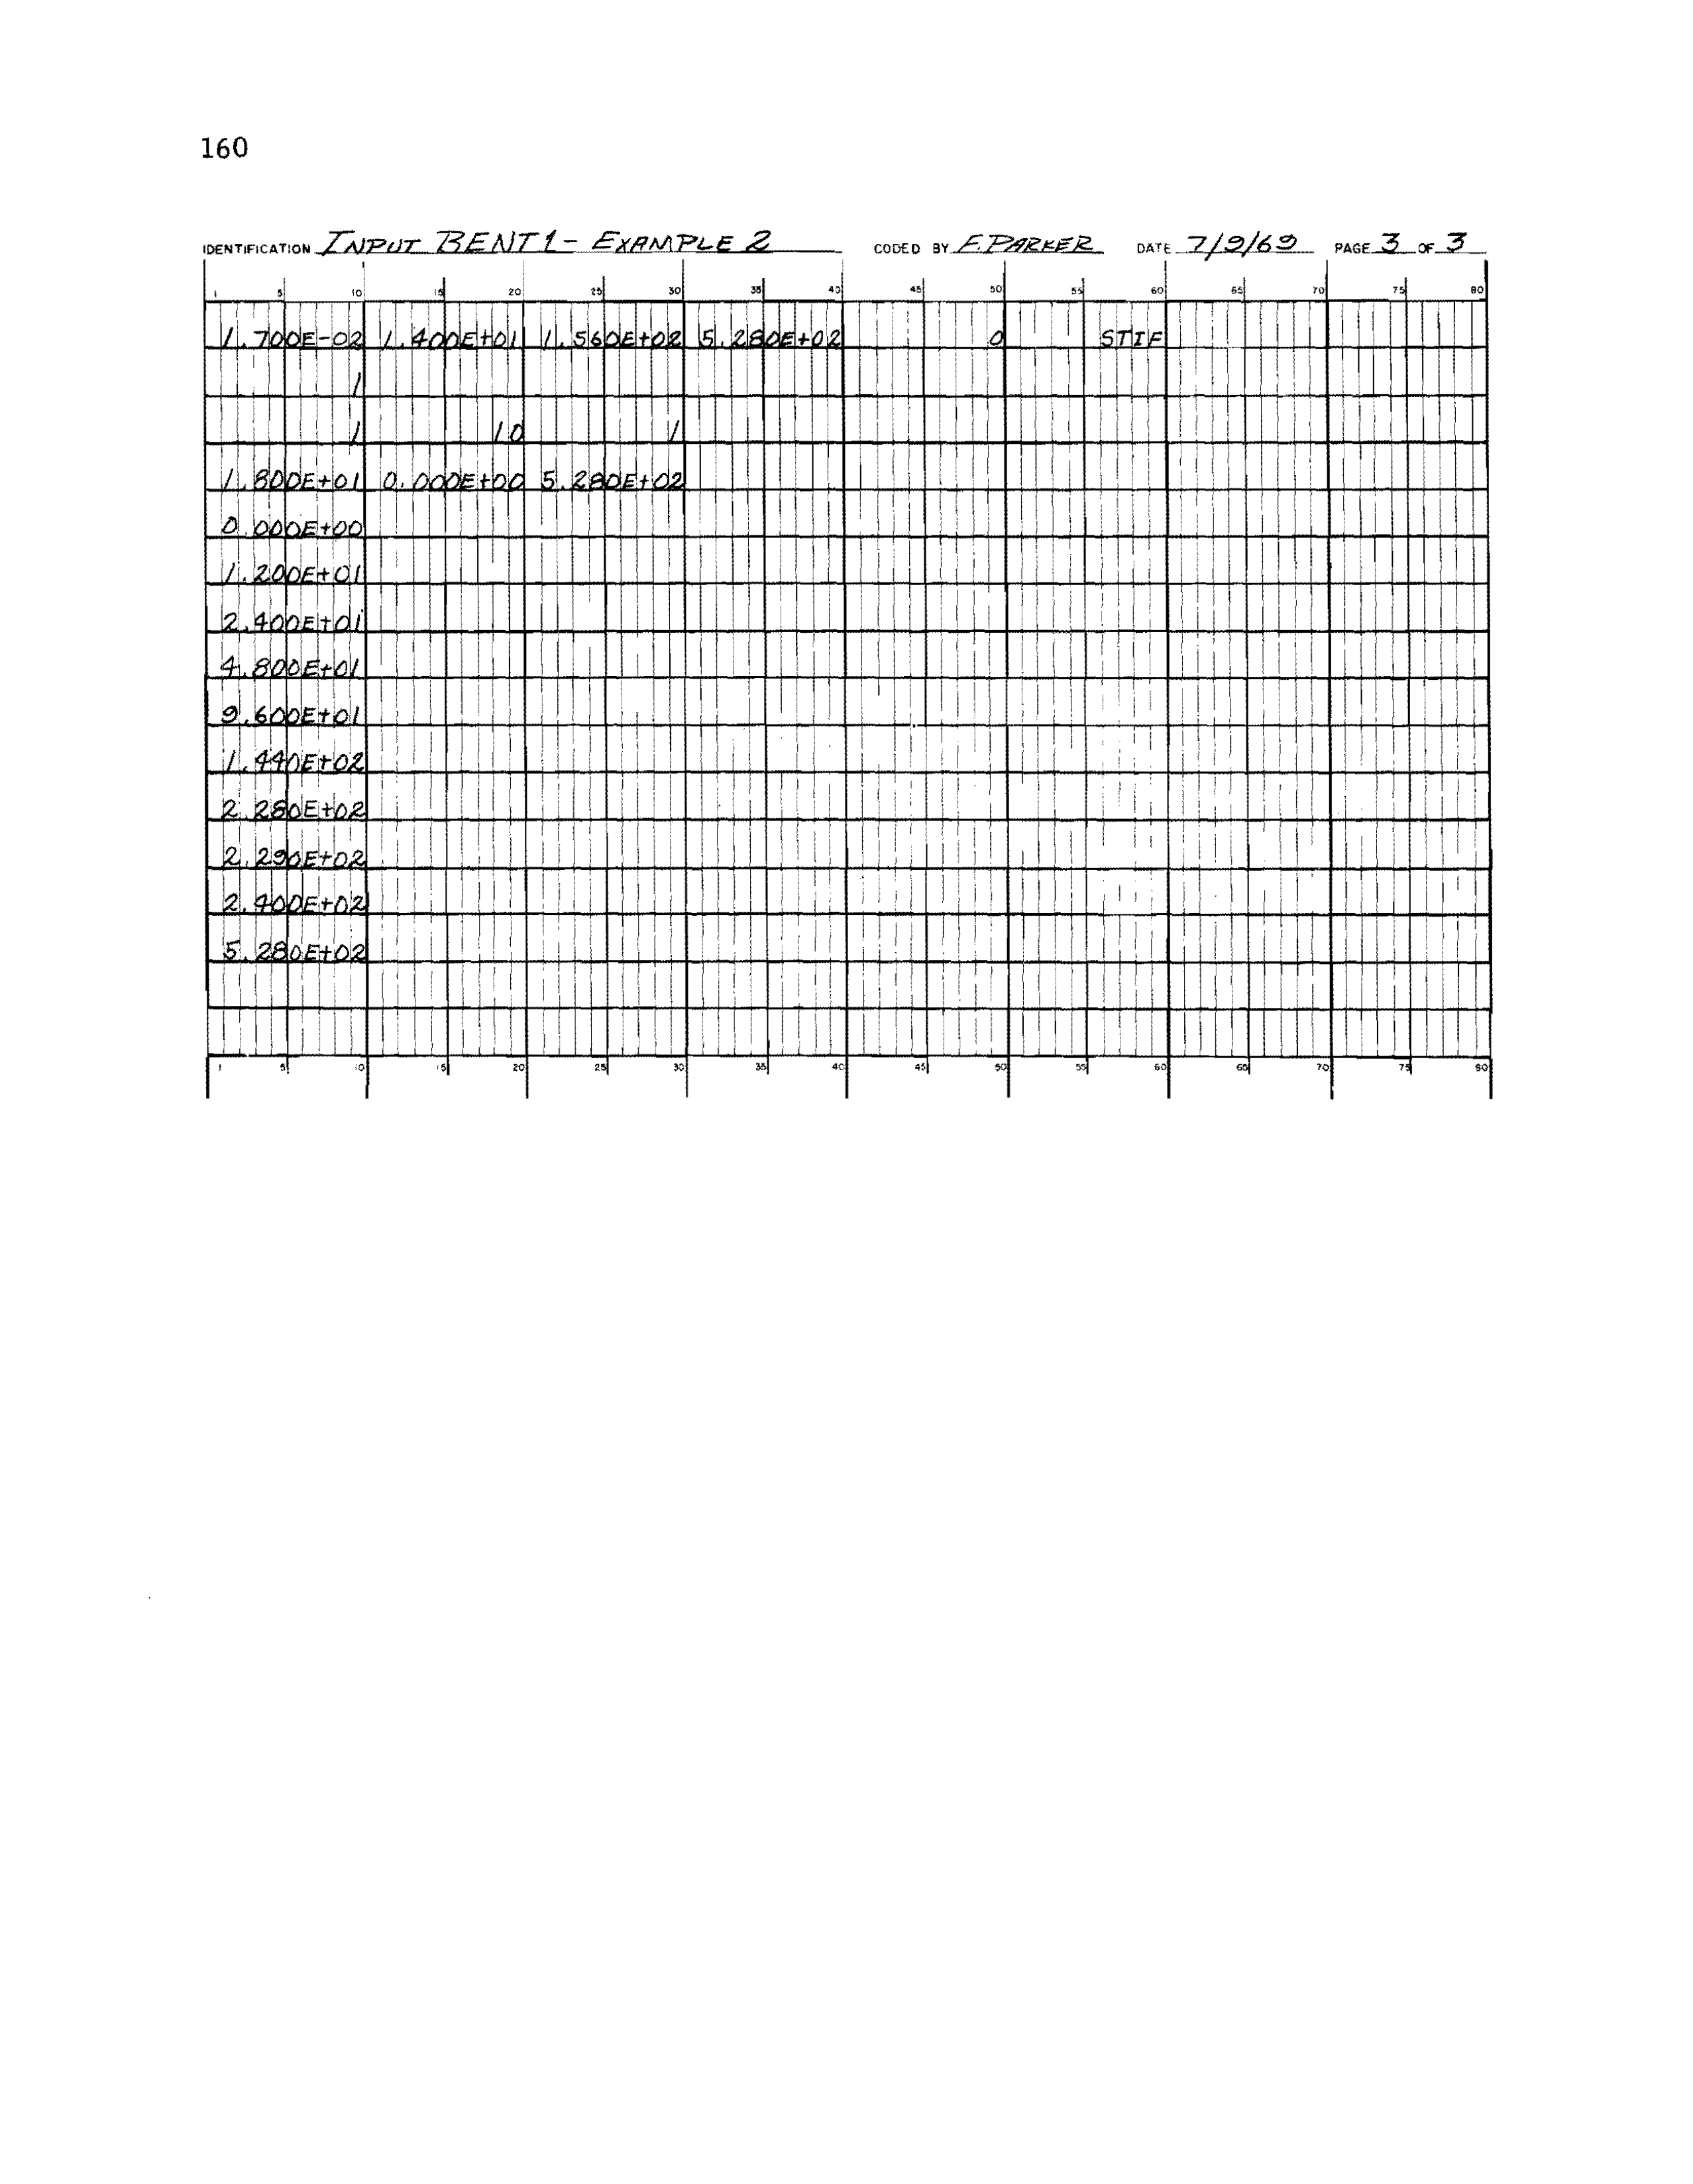 160
IDENTIFICATION INPUT BENT1- EXAMPLE 2 CODED BY F.PARKER DATE 7/9/69 PAGE 3 OF 3
1 5 10 15 20 25 30 35 40 45 50 55 60 65 70 75 80
1.700E-02 1.400E+01 1.560E+02 5.280E+02 0 STIF
1
1 10 1
1.800E+01 0.000E+00 5.280E+02
0.000E+00
1.200E+01
2.400E+01
4.800E+01
9.600E+01
1.440E+02
2.280E+02
2.290E+02
2.400E+02
5.280E+02
1 5 10 15 20 25 30 35 40 45 50 55 60 65 70 75 80